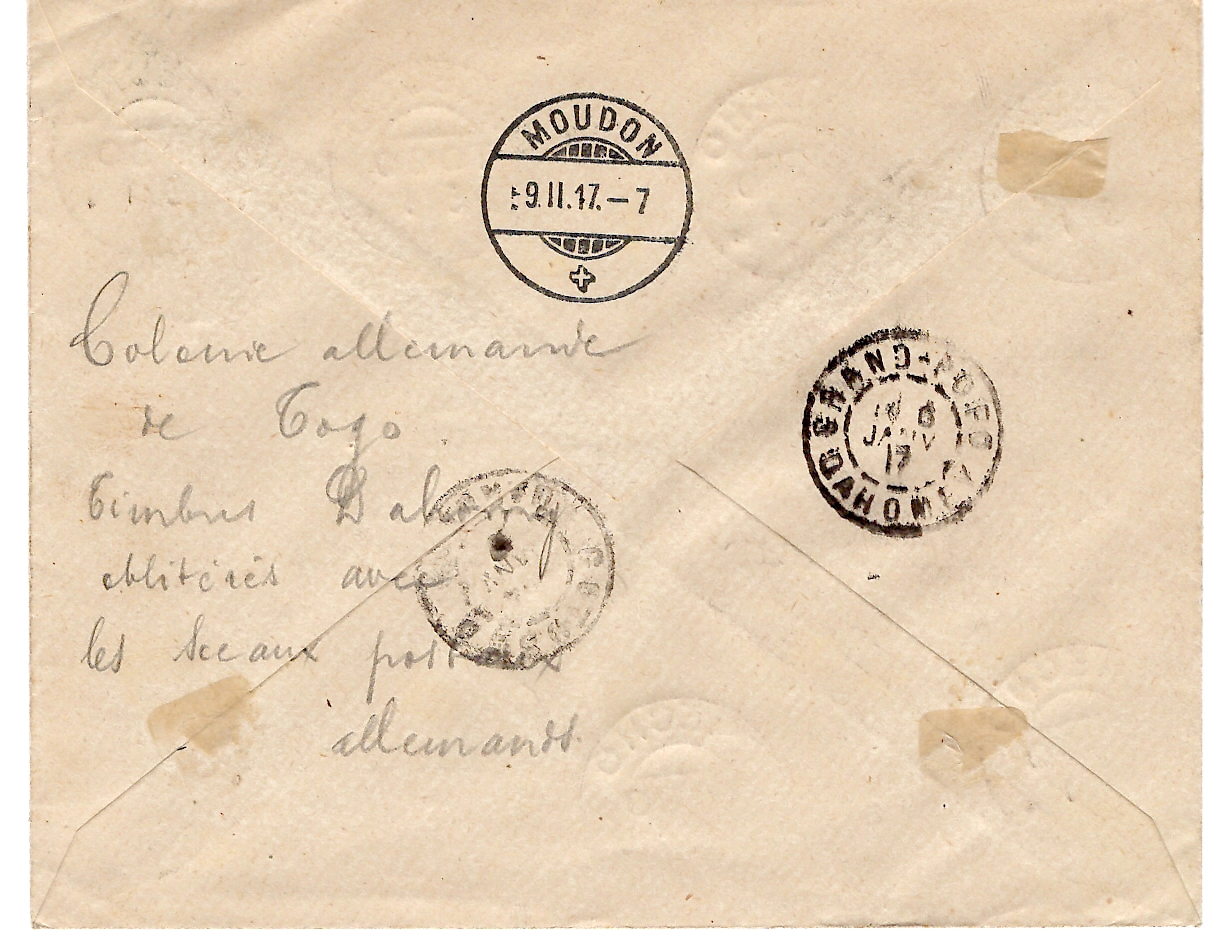 MOUDON
9.II.17.–7
Colonie allemande
de Togo.
Timbres Dahomey
oblitérés avec
les sceaux postaux
allemands.
GRAND-POPO
6
JANV
17
DAHOMEY